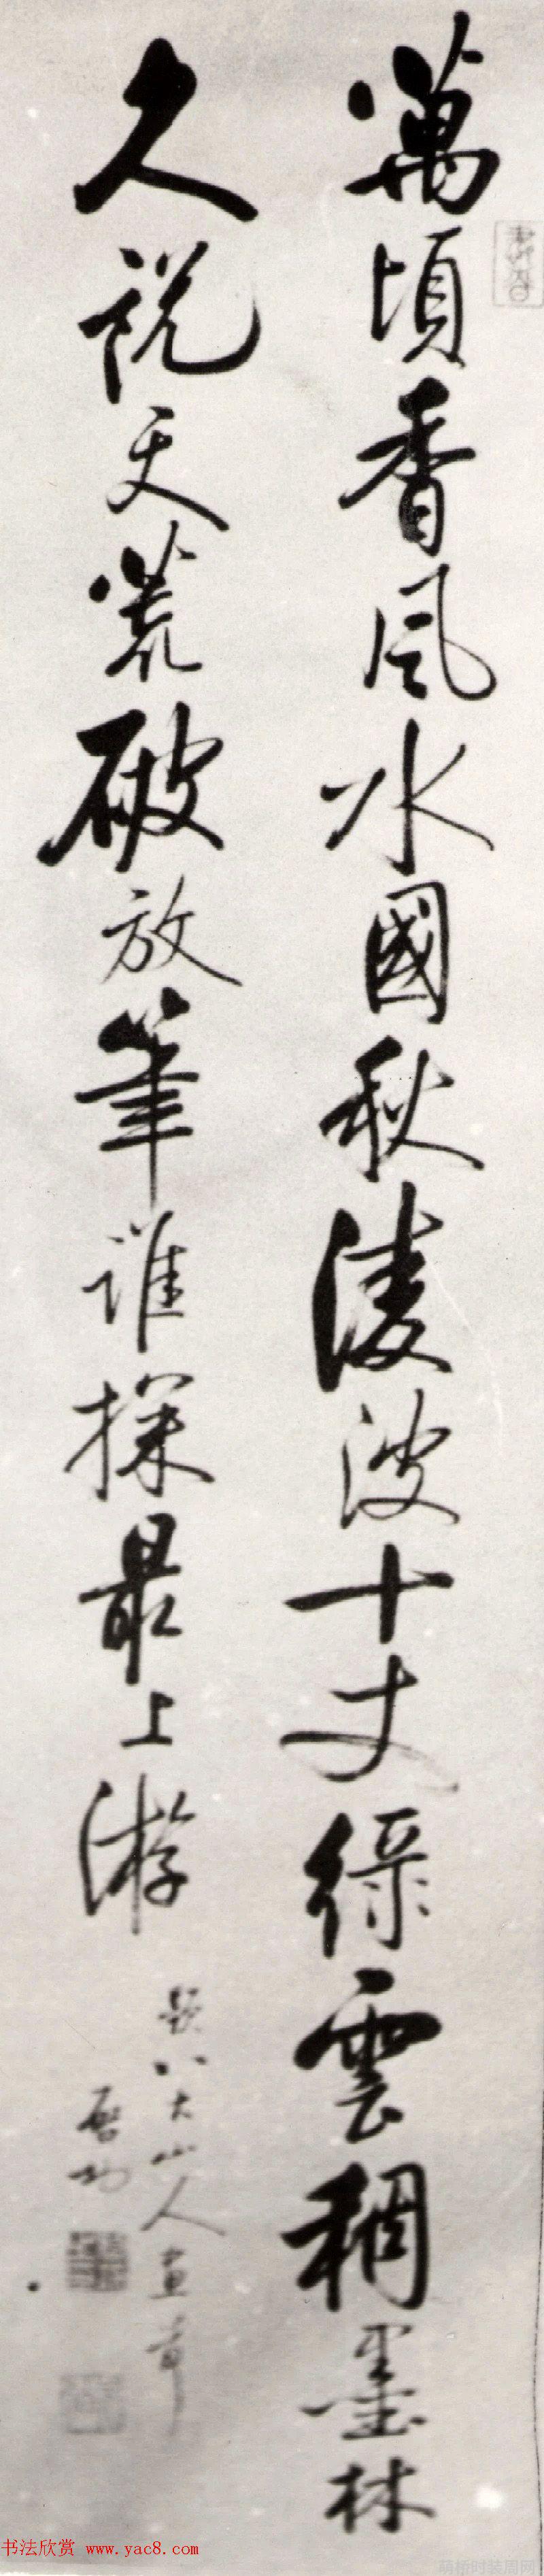 萬頃香風水國秋淩波十丈綠雲稠墨林
久說天荒破放筆誰探最上游
題八大山人畫
啓功
书法欣赏 www.yac8.com